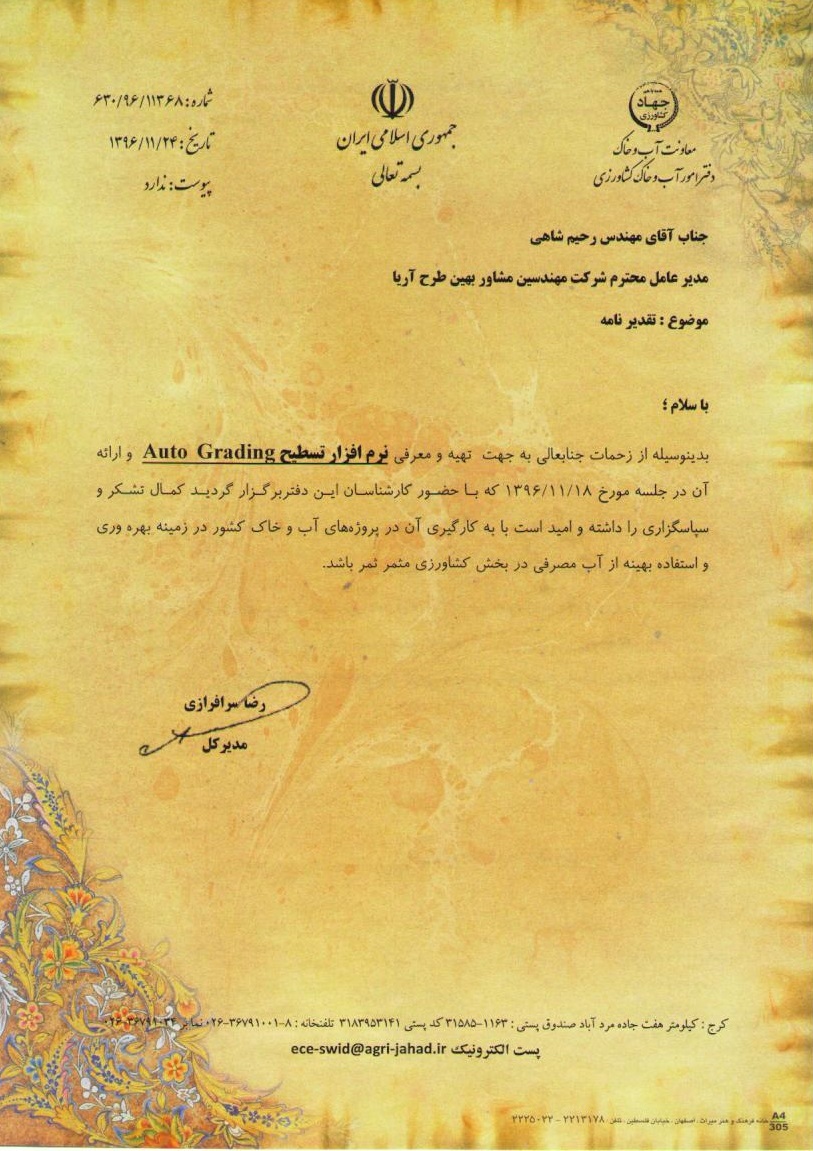 همه با هم
جهاد
کشاورزی
معاونت آب و خاک
دفتر امور آب و خاک کشاورزی
جمهوری اسلامی ایران
بسمه تعالی
شماره: ۶۳۰/۹۶/۱۱۳۶۸
تاریخ: ۱۳۹۶/۱۱/۲۴
پیوست: ندارد
جناب آقای مهندس رحیم شاهی
مدیر عامل محترم شرکت مهندسین مشاور بهین طرح آریا
موضوع : تقدیر نامه
با سلام ؛
بدینوسیله از زحمات جنابعالی به جهت تهیه و معرفی نرم افزار تسطیح Auto Grading و ارائه
آن در جلسه مورخ ۱۳۹۶/۱۱/۱۸ که با حضور کارشناسان این دفتربرگزار گردید کمال تشکر و
سپاسگزاری را داشته و امید است با به کارگیری آن در پروژه‌های آب و خاک کشور در زمینه بهره وری
و استفاده بهینه از آب مصرفی در بخش کشاورزی مثمر ثمر باشد.
رضا سرافرازی
مدیرکل
کرج : کیلومتر هفت جاده مرد آباد صندوق پستی : ۱۱۶۳-۳۱۵۸۵ کد پستی ۳۱۸۳۹۵۳۱۴۱ تلفنخانه : ۸-۳۶۷۹۱۰۰۱-۰۲۶ نمابر
پست الکترونیک ece-swid@agri-jahad.ir
A4
305
خانه فرهنگ و هنر میراث . اصفهان . خیابان فلسطین . تلفن : ۲۲۱۳۱۷۸ - ۲۲۲۵۰۲۲